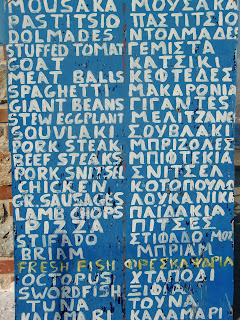 MOUSAKA ΜΟΥΣΑΚΑ
PASTITSIO ΠΑΣΤΙΤΣΙΟ
DOLMADES ΝΤΟΛΜΑΔΕΣ
STUFFED TOMAT ΓΕΜΙΣΤΑ
GOAT ΚΑΤΣΙΚΙ
MEAT BALLS ΚΕΦΤΕΔΕΣ
SPAGHETTI ΜΑΚΑΡΟΝΙΑ
GIANT BEANS ΓΙΓΑΝΤΕΣ
STEW EGGPLANT ΜΕΛΙΤΖΑΝΕΣ
SOUVLAKI ΣΟΥΒΛΑΚΙ
PORK STEAK ΜΠΡΙΖΟΛΕΣ
BEEF STEAKS ΜΠΙΦΤΕΚΙΑ
PORK SNISEL ΣΝΙΤΣΕΛ
CHICKEN ΚΟΤΟΠΟΥΛΟ
GR.SAUSAGES ΛΟΥΚΑΝΙΚΑ
LAMB CHOPS ΠΑΙΔΑΚΙΑ
PIZZA ΠΙΤΣΕΣ
STIFADO ΣΤΙΦΑΔΟ
BRIAM ΜΠΡΙΑΜ
FRESH FISH ΦΡΕΣΚΑ ΨΑΡΙΑ
OCTOPUS ΧΤΑΠΟΔΙ
SWORDFISH ΞΙΦΙΑΣ
TUNA ΤΟΥΝΑ
ΚΑΛΑΜΑΡΙ